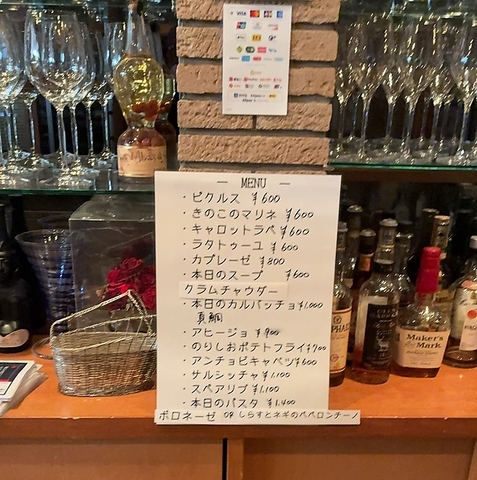 VISA
— MENU —
・ピクルス ¥600
・きのこのマリネ ¥600
・キャロットラペ ¥600
・ラタトゥーユ ¥600
・カプレーゼ ¥800
・本日のスープ ¥600
クラムチャウダー
・本日のカルパッチョ ¥1,000
真鯛
・アヒージョ ¥900
・のりしおポテトフライ ¥700
・アンチョビキャベツ ¥600
・サルシッチャ ¥1,100
・スペアリブ ¥1,100
・本日のパスタ ¥1,400
ボロネーゼ or しらすとネギのペペロンチーノ
Maker's
Mark